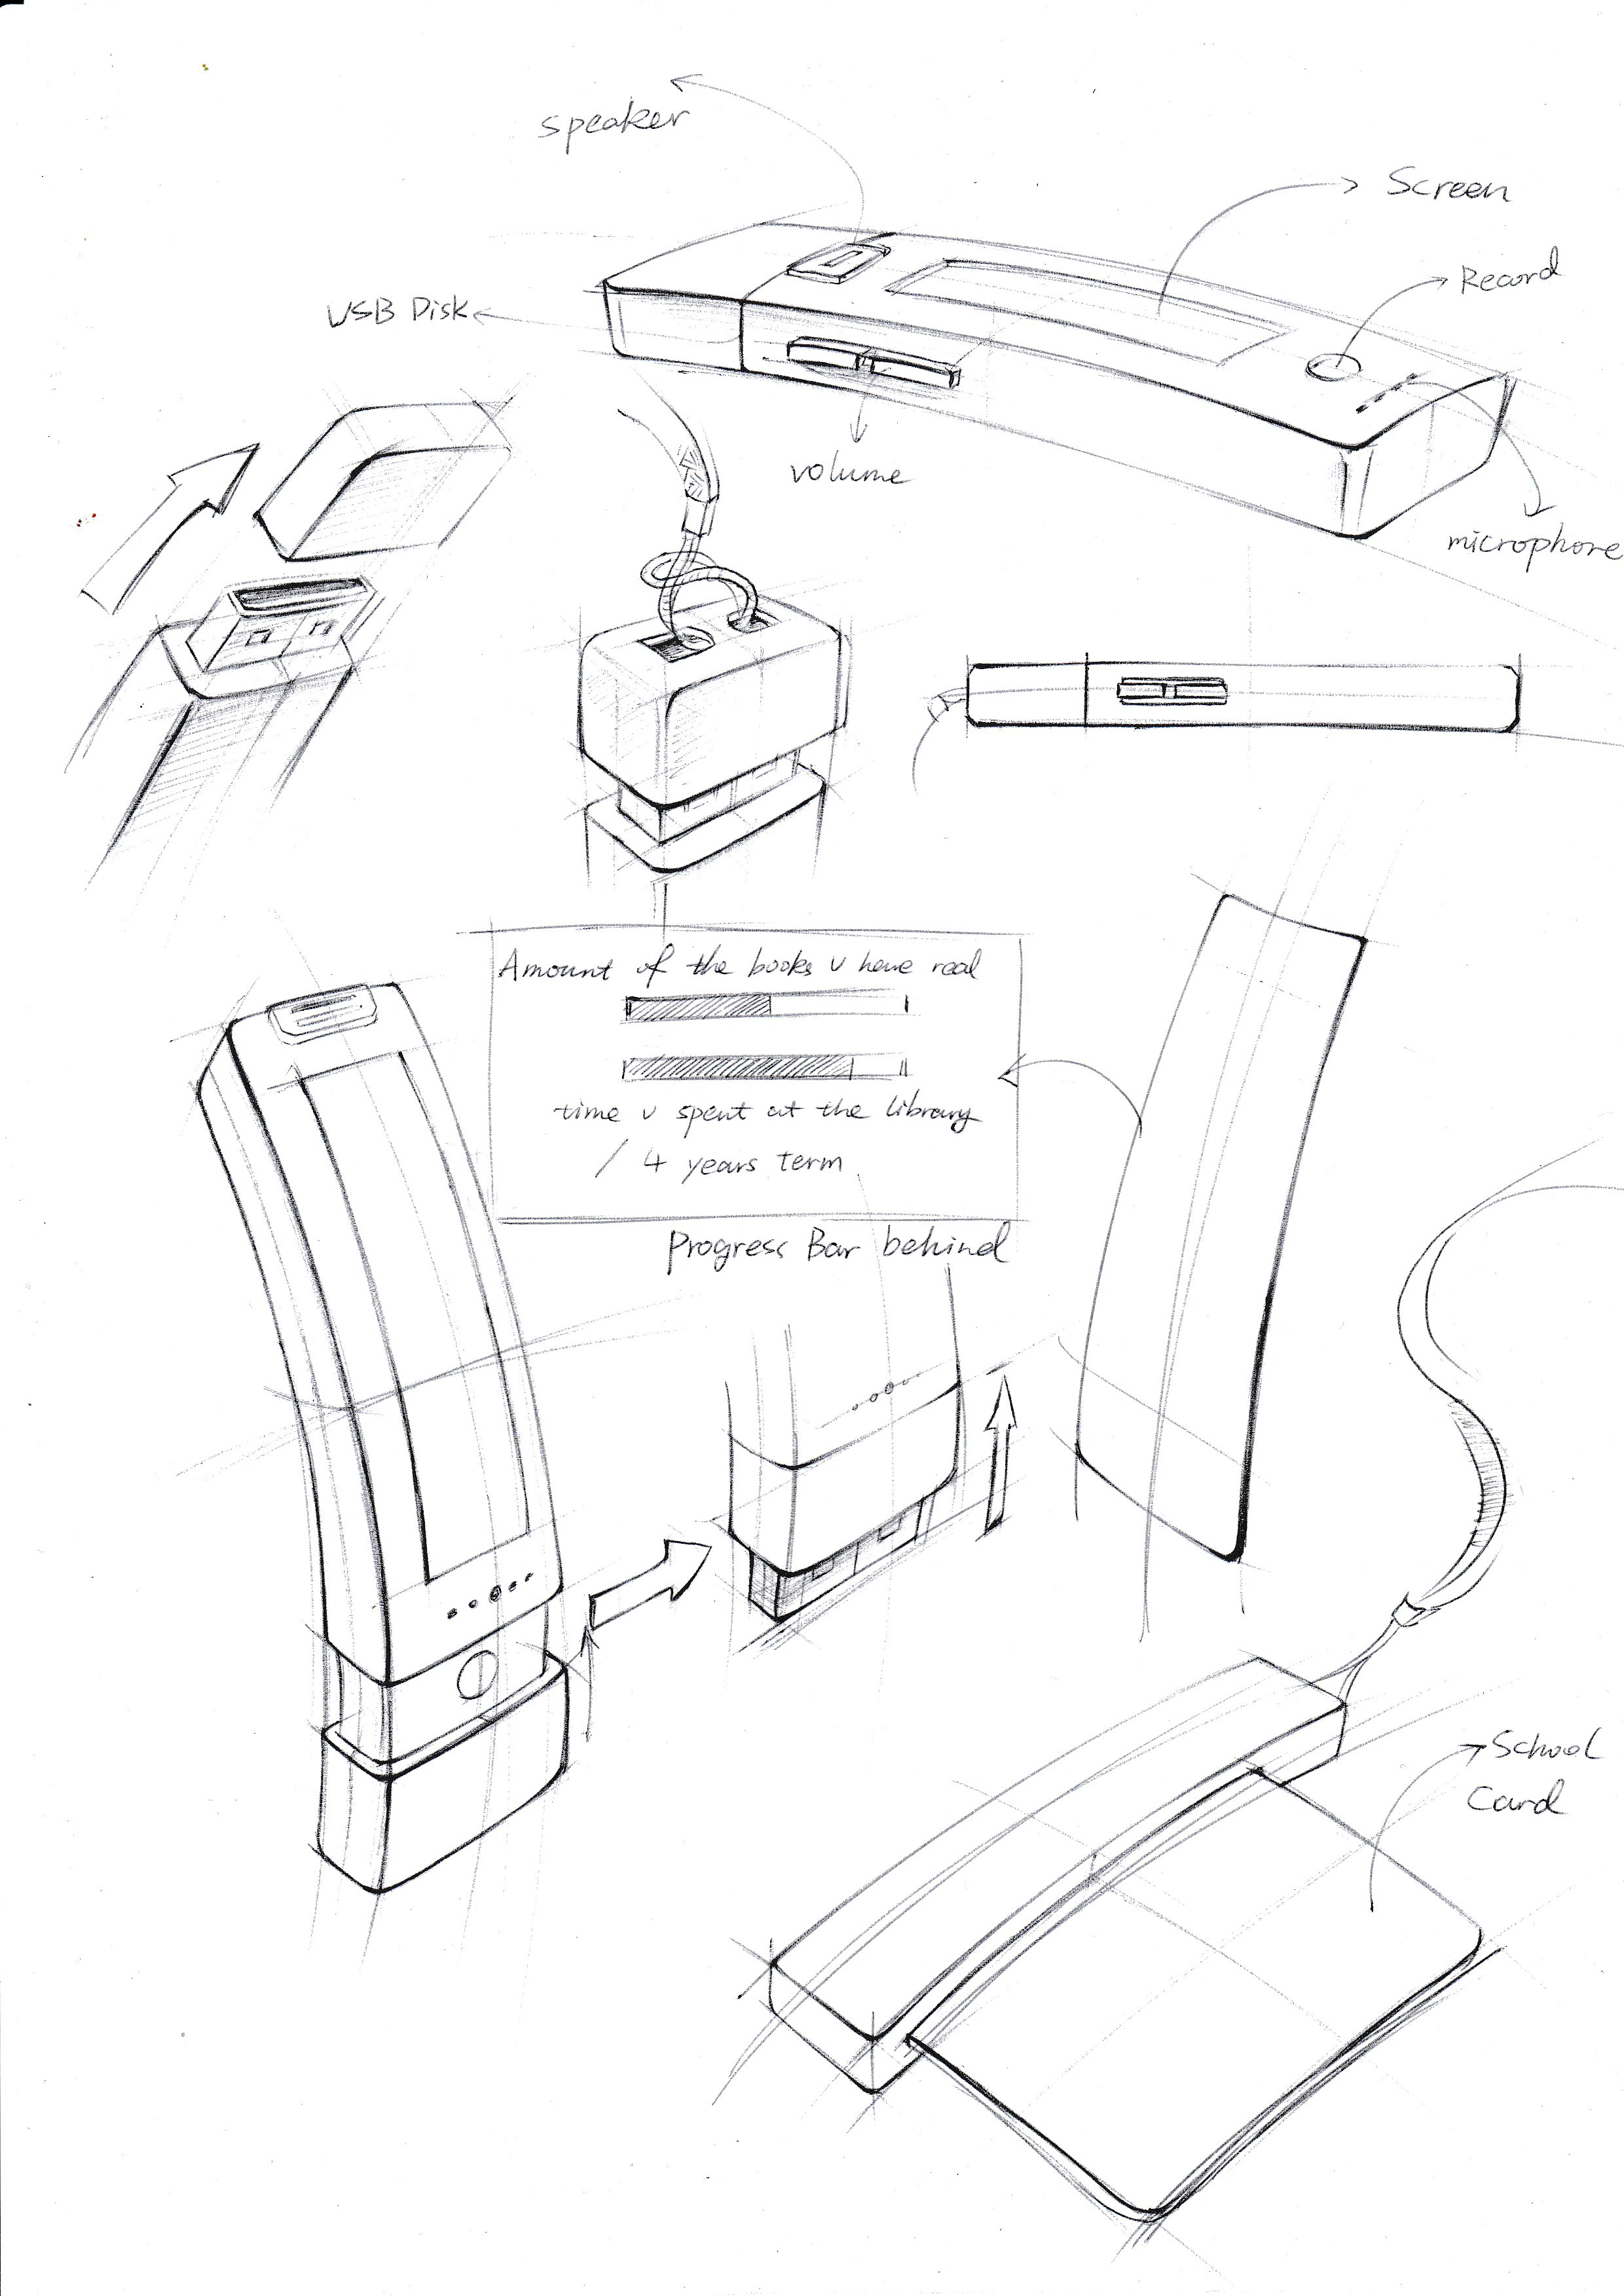 speaker
Screen
Record
USB Disk
volume
microphone
Amount of the books u have real
time u spent at the library
/ 4 years term
Progress Bar behind
School
Card